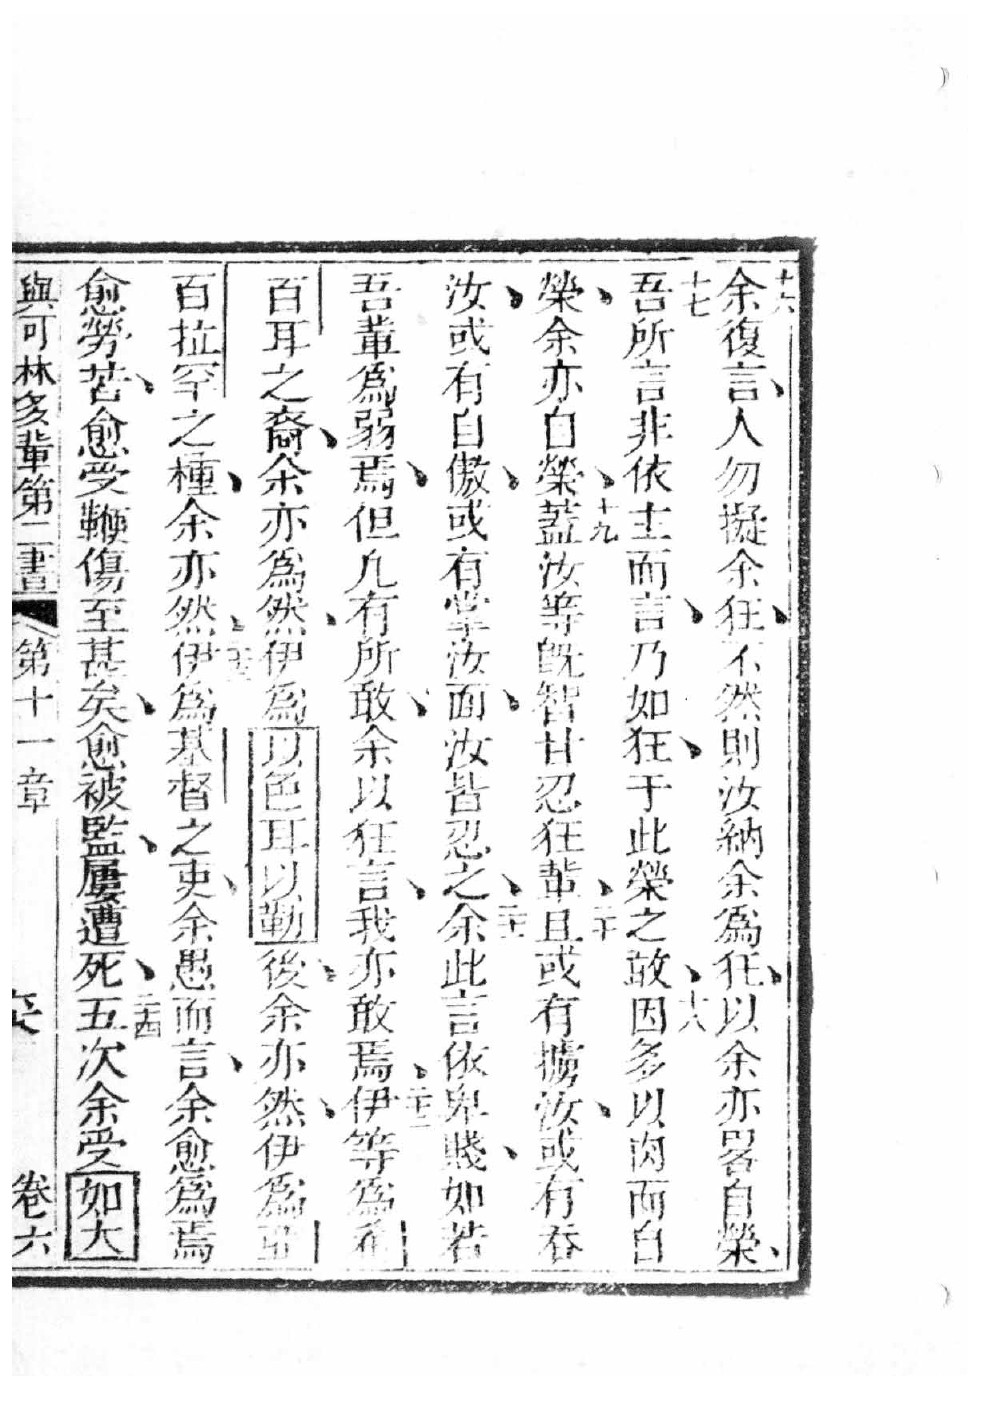 十六余復言人勿擬余狂不然則汝納余爲狂以余亦畧自榮
十七吾所言非依主而言乃如狂于此榮之敢十八因多以肉而自
榮余亦自榮十九蓋汝等旣智甘忍狂輩二十且或有擄汝或有吞
汝或有自傲或有掌汝面汝皆忍之二十一余此言依卑賤如若
吾輩爲弱焉但凢有所敢余以狂言我亦敢焉二十二伊等爲希
百耳之裔余亦爲然伊爲以色耳以勒後余亦然伊爲亞
百拉罕之種余亦然二十三伊爲基督之吏余愚而言余愈爲焉
愈勞苦愈受鞭傷至甚矣愈被監屢遭死二十四五次余受如大
與可林多輩第二書 第十一章 卷六